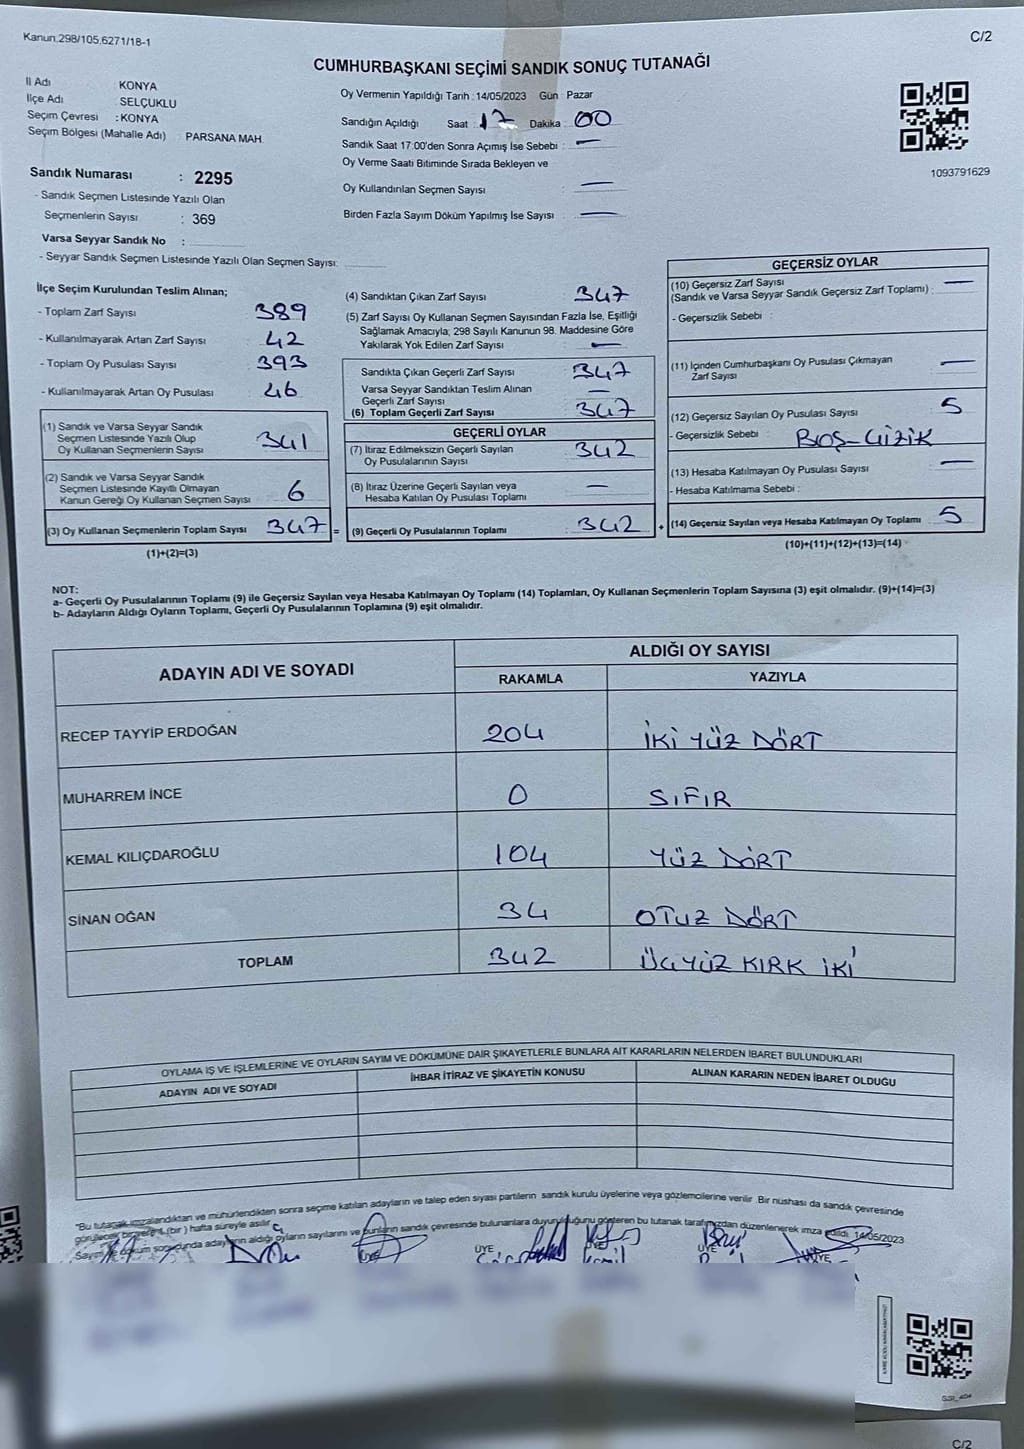 Kanun.298/105.6271/18-1
C/2
CUMHURBAŞKANI SEÇİMİ SANDIK SONUÇ TUTANAĞI
İl Adı : KONYA
İlçe Adı SELÇUKLU
Seçim Çevresi : KONYA
Seçim Bölgesi (Mahalle Adı) PARSANA MAH.
Oy Vermenin Yapıldığı Tarih : 14/05/2023 Gün : Pazar
Sandığın Açıldığı Saat : 17 Dakika : 00
Sandık Saat 17:00'den Sonra Açımış İse Sebebi : —
Oy Verme Saati Bitiminde Sırada Bekleyen ve
Oy Kullandırılan Seçmen Sayısı : —
Birden Fazla Sayım Döküm Yapılmış İse Sayısı : —
1093791629
Sandık Numarası : 2295
- Sandık Seçmen Listesinde Yazılı Olan
Seçmenlerin Sayısı : 369
Varsa Seyyar Sandık No :
- Seyyar Sandık Seçmen Listesinde Yazılı Olan Seçmen Sayısı:
İlçe Seçim Kurulundan Teslim Alınan;
- Toplam Zarf Sayısı 389
- Kullanılmayarak Artan Zarf Sayısı 42
- Toplam Oy Pusulası Sayısı 393
- Kullanılmayarak Artan Oy Pusulası 46
(1) Sandık ve Varsa Seyyar Sandık
Seçmen Listesinde Yazılı Olup
Oy Kullanan Seçmenlerin Sayısı 341
(2) Sandık ve Varsa Seyyar Sandık
Seçmen Listesinde Kayıtlı Olmayan
Kanun Gereği Oy Kullanan Seçmen Sayısı 6
(3) Oy Kullanan Seçmenlerin Toplam Sayısı 347 =
(1)+(2)=(3)
(4) Sandıktan Çıkan Zarf Sayısı 347
(5) Zarf Sayısı Oy Kullanan Seçmen Sayısından Fazla İse, Eşitliği
Sağlamak Amacıyla; 298 Sayılı Kanunun 98. Maddesine Göre
Yakılarak Yok Edilen Zarf Sayısı : —
Sandıkta Çıkan Geçerli Zarf Sayısı : 347
Varsa Seyyar Sandıktan Teslim Alınan
Geçerli Zarf Sayısı : —
(6) Toplam Geçerli Zarf Sayısı : 347
GEÇERLİ OYLAR
(7) İtiraz Edilmeksizin Geçerli Sayılan
Oy Pusulalarının Sayısı : 342
(8) İtiraz Üzerine Geçerli Sayılan veya
Hesaba Katılan Oy Pusulası Toplamı : —
(9) Geçerli Oy Pusulalarının Toplamı : 342 +
GEÇERSİZ OYLAR
(10) Geçersiz Zarf Sayısı
(Sandık ve Varsa Seyyar Sandık Geçersiz Zarf Toplamı) : —
- Geçersizlik Sebebi :
(11) İçinden Cumhurbaşkanı Oy Pusulası Çıkmayan
Zarf Sayısı —
(12) Geçersiz Sayılan Oy Pusulası Sayısı 5
- Geçersizlik Sebebi : BOŞ-ÇİZİK
(13) Hesaba Katılmayan Oy Pusulası Sayısı —
- Hesaba Katılmama Sebebi :
(14) Geçersiz Sayılan veya Hesaba Katılmayan Oy Toplamı 5
(10)+(11)+(12)+(13)=(14)
NOT:
a- Geçerli Oy Pusulalarının Toplamı (9) ile Geçersiz Sayılan veya Hesaba Katılmayan Oy Toplamı (14) Toplamları, Oy Kullanan Seçmenlerin Toplam Sayısına (3) eşit olmalıdır. (9)+(14)=(3)
b- Adayların Aldığı Oyların Toplamı, Geçerli Oy Pusulalarının Toplamına (9) eşit olmalıdır.
ADAYIN ADI VE SOYADI
ALDIĞI OY SAYISI
RAKAMLA YAZIYLA
RECEP TAYYİP ERDOĞAN 204 İKİ YÜZ DÖRT
MUHARREM İNCE 0 SIFIR
KEMAL KILIÇDAROĞLU 104 YÜZ DÖRT
SİNAN OĞAN 34 OTUZ DÖRT
TOPLAM 342 ÜÇYÜZ KIRK İKİ
OYLAMA İŞ VE İŞLEMLERİNE VE OYLARIN SAYIM VE DÖKÜMÜNE DAİR ŞİKAYETLERLE BUNLARA AİT KARARLARIN NELERDEN İBARET BULUNDUKLARI
ADAYIN ADI VE SOYADI İHBAR İTİRAZ VE ŞİKAYETİN KONUSU ALINAN KARARIN NEDEN İBARET OLDUĞU
"Bu tutanak imzalandıktan ve mühürlendikten sonra seçime katılan adayların ve talep eden siyasi partilerin sandık kurulu üyelerine veya gözlemcilerine verilir. Bir nüshası da sandık çevresinde
görülecek bir yere (bir) hafta süreyle asılır.
Sayım ve döküm sonucunda adayların aldığı oyların sayılarını ve bunların sandık çevresinde bulunanlara duyurulduğunu gösteren bu tutanak tarafımızdan düzenlenerek imza edildi. 14/05/2023
ÜYE ÜYE ÜYE ÜYE ÜYE
C/2